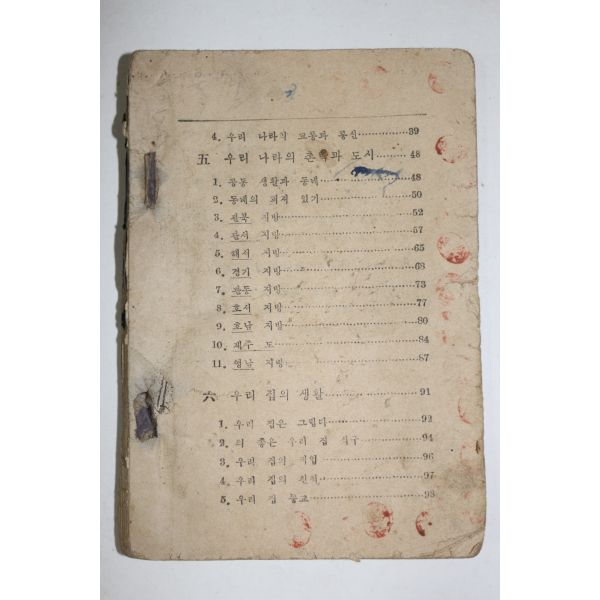 4. 우리 나라의 교통과 통신 39
五 우리 나라의 촌락과 도시 48
1. 공동 생활과 동네 48
2. 동네의 되어 있기 50
3. 관북 지방 52
4. 관서 지방 57
5. 해서 지방 65
6. 경기 지방 68
7. 관동 지방 73
8. 호서 지방 77
9. 호남 지방 80
10. 제주 도 84
11. 영남 지방 87
六 우리 집의 생활 91
1. 우리 집은 그립다 92
2. 의 좋은 우리 집 식구 94
3. 우리 집의 직업 96
4. 우리 집의 친척 97
5. 우리 집 종교 98